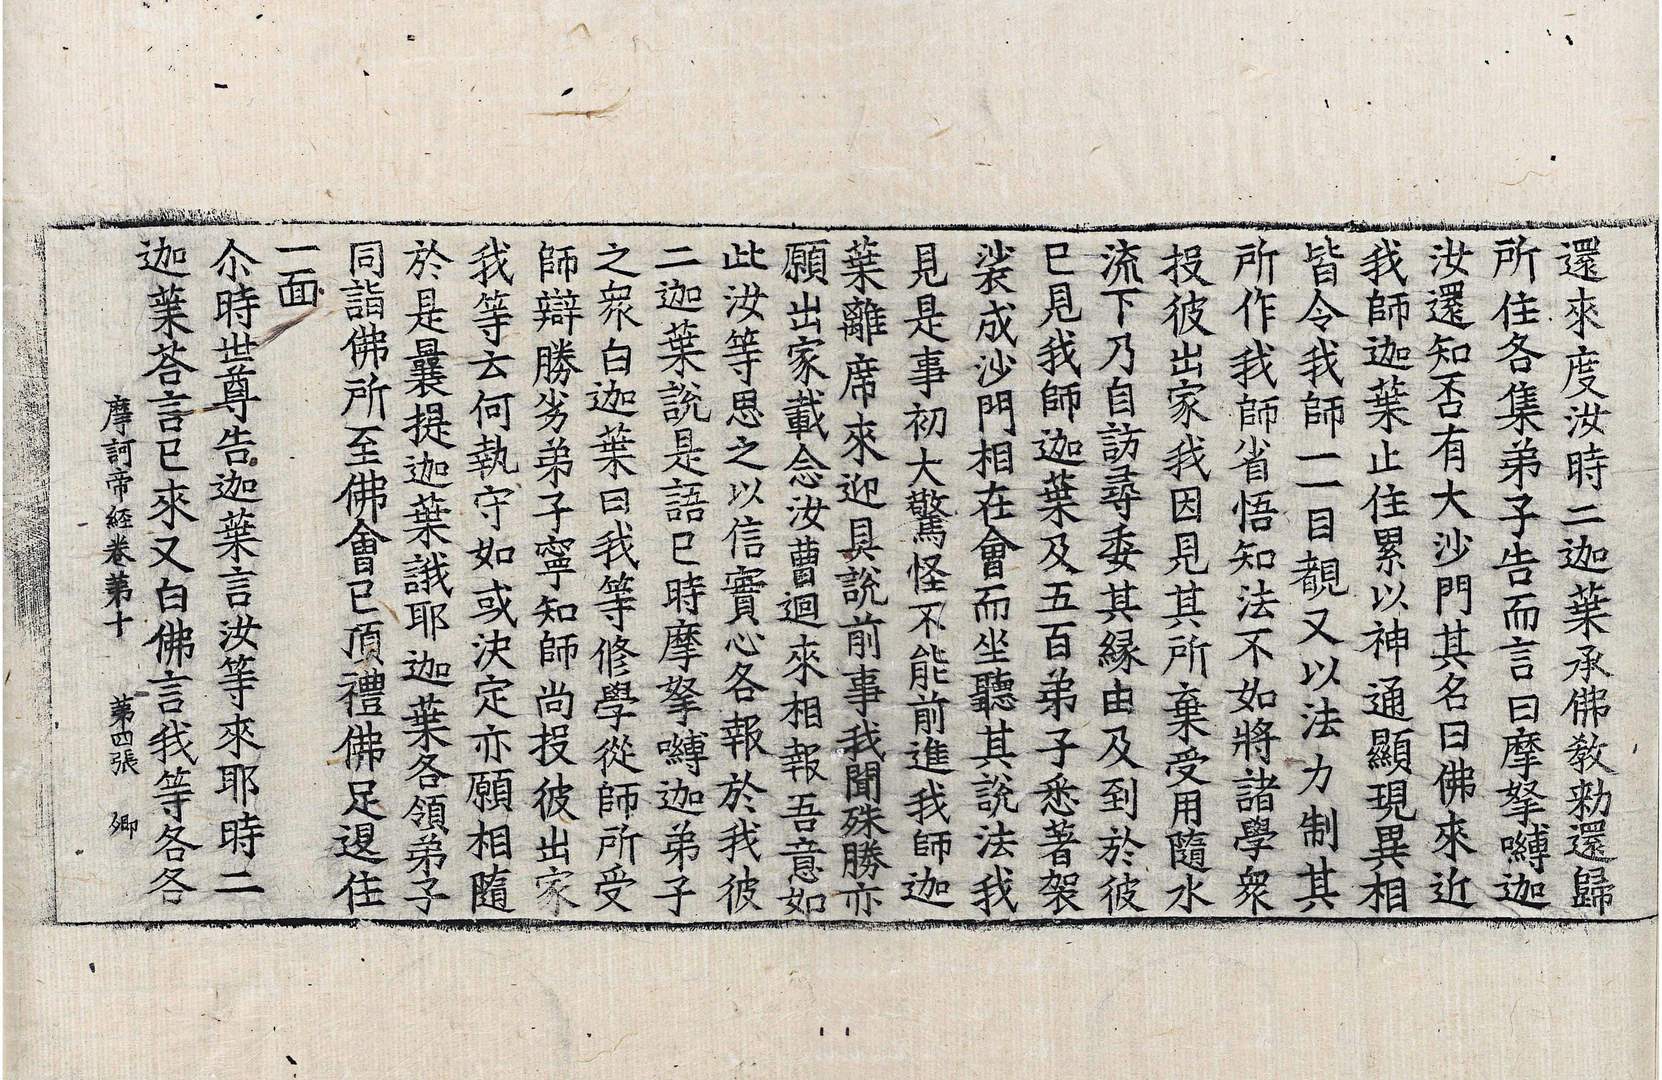 還來度汝時二迦葉承佛敎勑還歸
所住各集弟子告而言曰摩拏嚩迦
汝還知否有大沙門其名曰佛來近
我師迦葉止住累以神通顯現異相
皆令我師一一目覩又以法力制其
所作我師省悟知法不如將諸學衆
投彼出家我因見其所棄受用隨水
流下乃自訪尋委其縁由及到於彼
已見我師迦葉及五百弟子悉著袈
裟成沙門相在會而坐聽其說法我
見是事初大驚怪不能前進我師迦
葉離席來迎具說前事我聞殊勝亦
願出家載念汝曹迴來相報吾意如
此汝等思之以信實心各報於我彼
二迦葉說是語已時摩拏嚩迦弟子
之衆白迦葉曰我等修學從師所受
師辯勝劣弟子寧知師尚投彼出家
我等云何執守如或決定亦願相隨
於是曩提迦葉誐耶迦葉各領弟子
同詣佛所至佛會已頂禮佛足退住
一面
尒時世尊告迦葉言汝等來耶時二
迦葉荅言已來又白佛言我等各各
摩訶帝経卷第十 第四張 卿